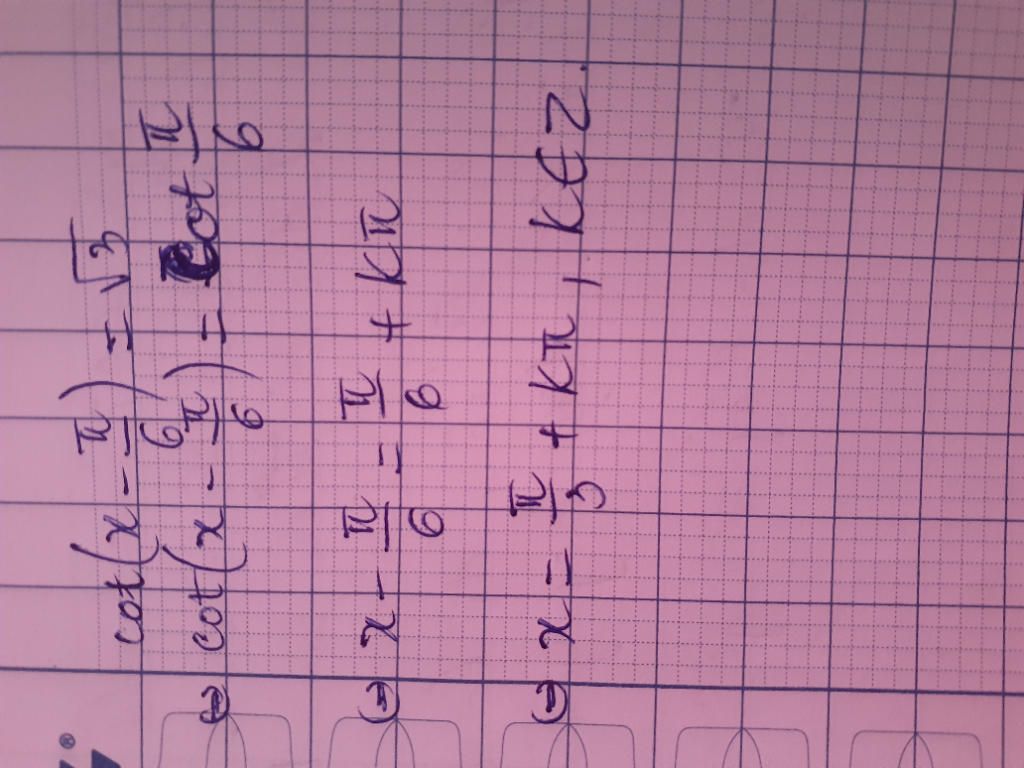 cot(x - π/6) = √3
⇔ cot(x - π/6) = cot π/6
⇔ x - π/6 = π/6 + kπ
⇔ x = π/3 + kπ, k ∈ Z.
®